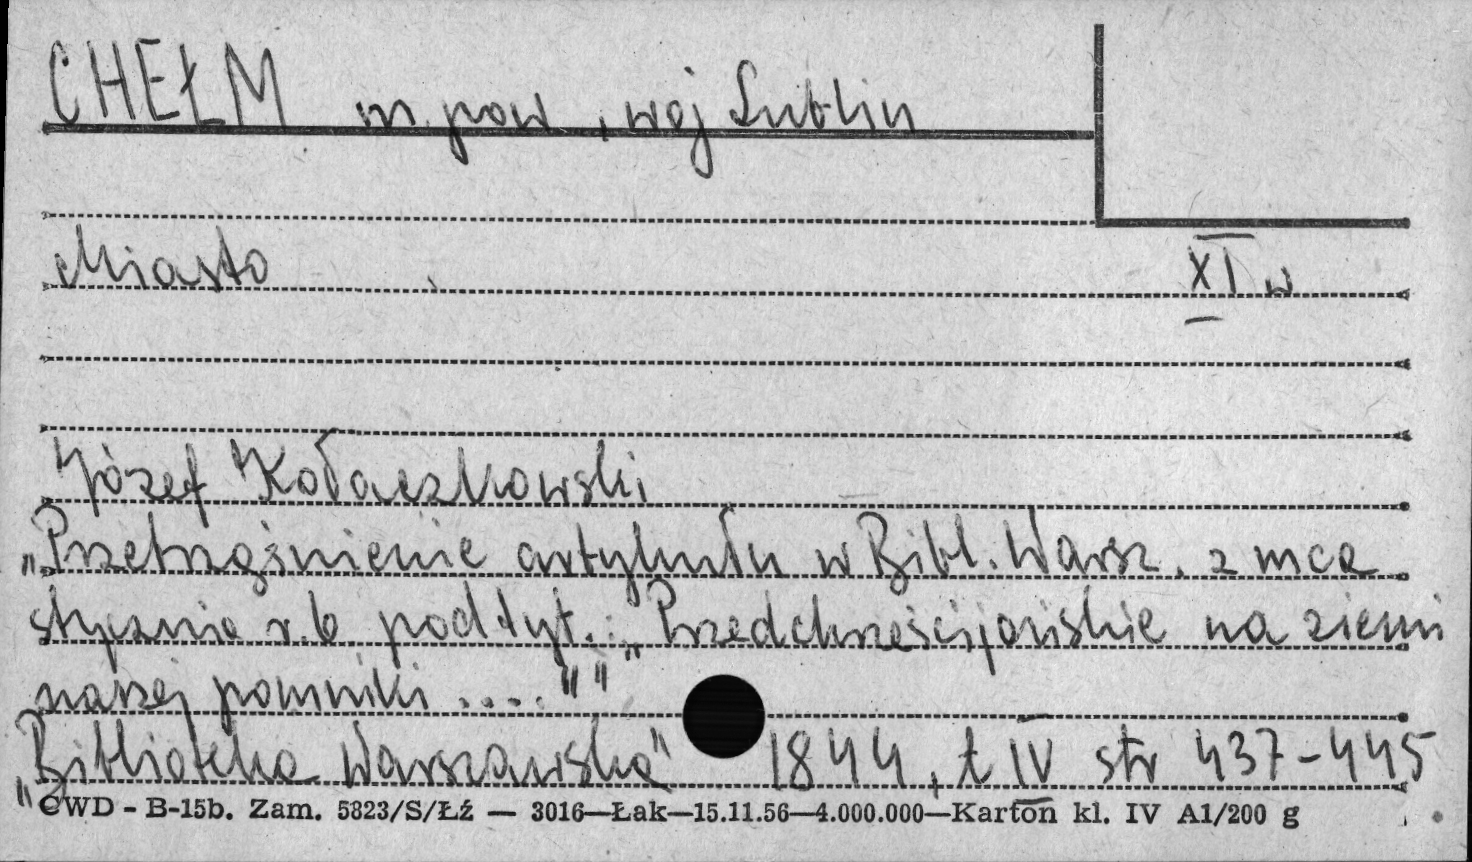 CHEŁM m. pow., woj Lublin
Miasto XI w
Józef Kołaczkowski
„Przetrząśnienie artykułu w Bibl. Warsz. z mca
stycznia r.b. pod tyt.: „Przedchrześcijańskie na ziemi
naszej pomniki ...." "
„Biblioteka Warszawska" 1844, t IV str 437-445
CWD - B-15b. Zam. 5823/S/Łź — 3016—Łak—15.11.56—4.000.000—Karton kl. IV A1/200 g